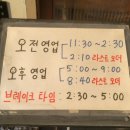 오전영업 11:30~2:30
2:10 라스트 오더
오후 영업 5:00~9:00
8:40 라스트 오더
브레이크 타임: 2:30~5:00